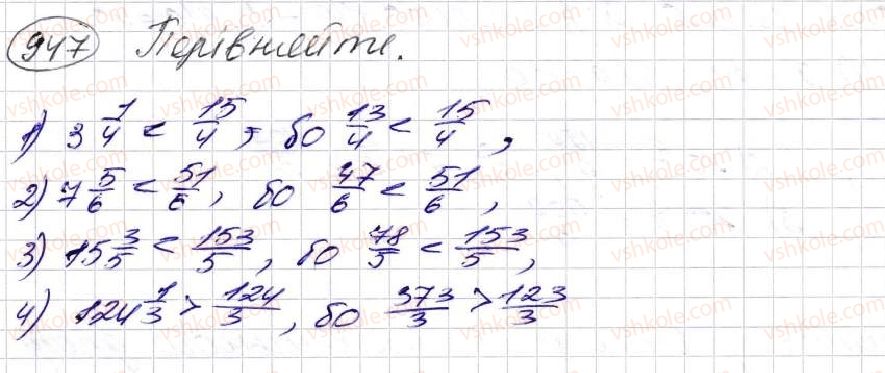 947 Порівняйте.
1) 3 1/4 < 15/4, бо 13/4 < 15/4,
2) 7 5/6 < 51/6, бо 47/6 < 51/6,
3) 15 3/5 < 153/5, бо 78/5 < 153/5,
4) 124 1/3 > 124/3, бо 373/3 > 123/3
vshkole.com